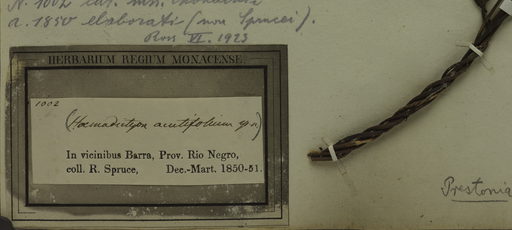 a. 1850 elaborati (non Sprucei).
Ross VI. 1923
HERBARIUM REGIUM MONACENSE.
1002
(Haemadictyon acutifolium sp. n.)
In vicinibus Barra, Prov. Rio Negro,
coll. R. Spruce, Dec.-Mart. 1850-51.
Prestonia